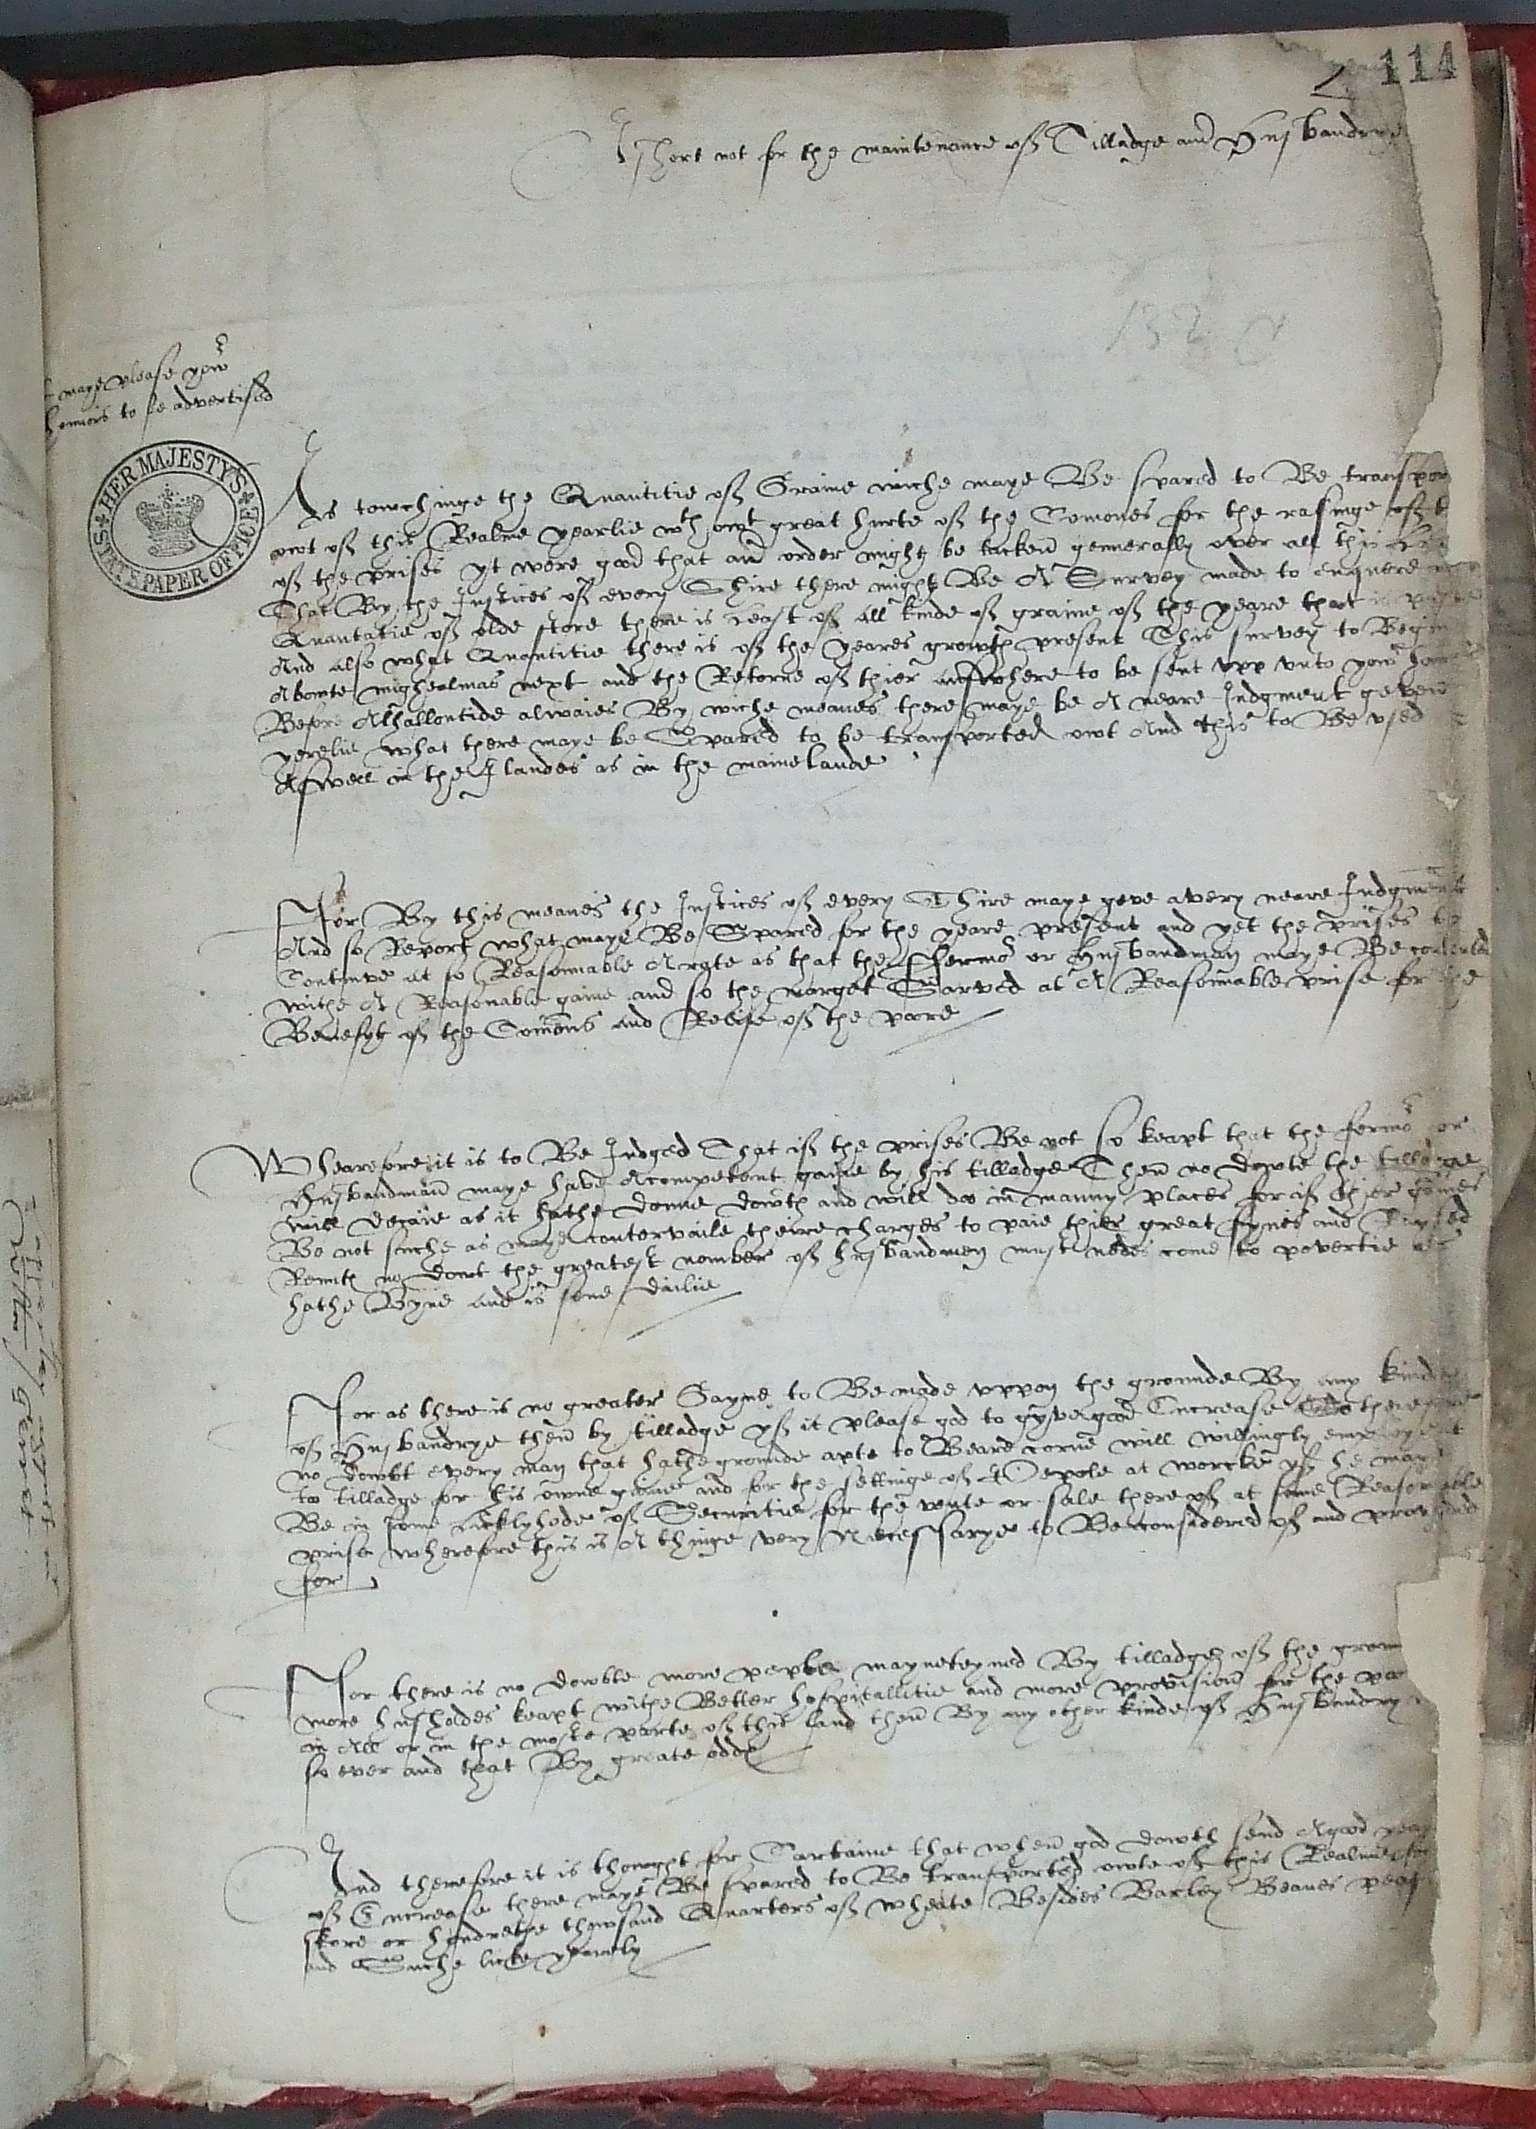 114
A short not for the maintenance off Tilladge and Husbandrye
132
maye please yow^r
honnors to be advertised
HER MAJESTY'S STATE PAPER OFFICE
As towchinge the Quantitie off Graine wiche maye Be spared to Be transpor
owt off this Realme yearlie w^th owt great hurte off the Comones for the rasinge off
off the prises yt were good that an order might be tacken gennerally over all this
That By the Justices off every Shire there might Be A Survey made to enquere
Quantatie off olde store there is Least off all kinde off graine off the yeare that is
And also what Quantitie there is off the yeares growth present This survey to Begin
Aboute mighealmas next and the Retorne off thier answhere to be sent upp unto yow^r
Before Alhallontide alwaies By wiche meanes there maye be A neare Judgment geven
yerelie what there maye be Spared to be transported owt And this to Be used
Aswell in the Ilandes as in the maine lande
For By this meanes the Justices off every Shire maye geve a very neare Judgment
And so Report what maye Be Spared for the yeare present and yet the prises to
Contineve at so Reasonnable A rate as that the ffermo^r or husbandman maye Be contented
withe A Reasonable gaine and so the marget Sarved at A Reasonnable prise for the
Benefyt off the Comons and Relife off the poore
Wheareforeit is to Be Judged That iff the prises Be not so keapt that the fermo^r or
husbandman maye have Acompetent gaine by his tilladge Then no dowte the tilladge
will decaie as it hathe donne dowth and will doo in manny places for iff thier gaines
Be not suche as maye contervaile theire charges to paie thier great fynes and Raysed
Rentts no dowt the greatest nomber off husbandmen must nedes come to povertie as
hathe Byne and is sene dailie
For as there is no greater Gayne to Be made uppon the grounde By any kinde
off Husbandrye then by tilladge yff it please god to gyve good Encrease So therefore
no dowbt every man that hathe grounde apte to Beare corne will willingly employe it
to tilladge for his owne gaine and for the settinge off People at worcke yff he maye
Be in some licklyhode off Securitie for the vente or sale there off at some Reasonable
prise wherefore this is A thinge very Necessarye to Be considered off and provided
for
For there is no dowble more people mayneteyned By tilladge off the groun
more husholdes keapt withe Better hospitallitie and more provision for the poo
in All or in the moste parte off this land then By any other kinde off husbandry
so ever and that By greate odds
And therefore it is thowght for Sartaine that when god dowth send A good yeare
off Encrease there maye Be spared to Be transported owte off this Realme
skore or hondrethe thowsand Quarters off wheate Besides Barley Beanes peas
and Suche licke yearely